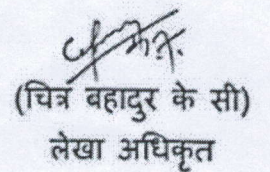 (चित्र बहादुर के सी)
लेखा अधिकृत